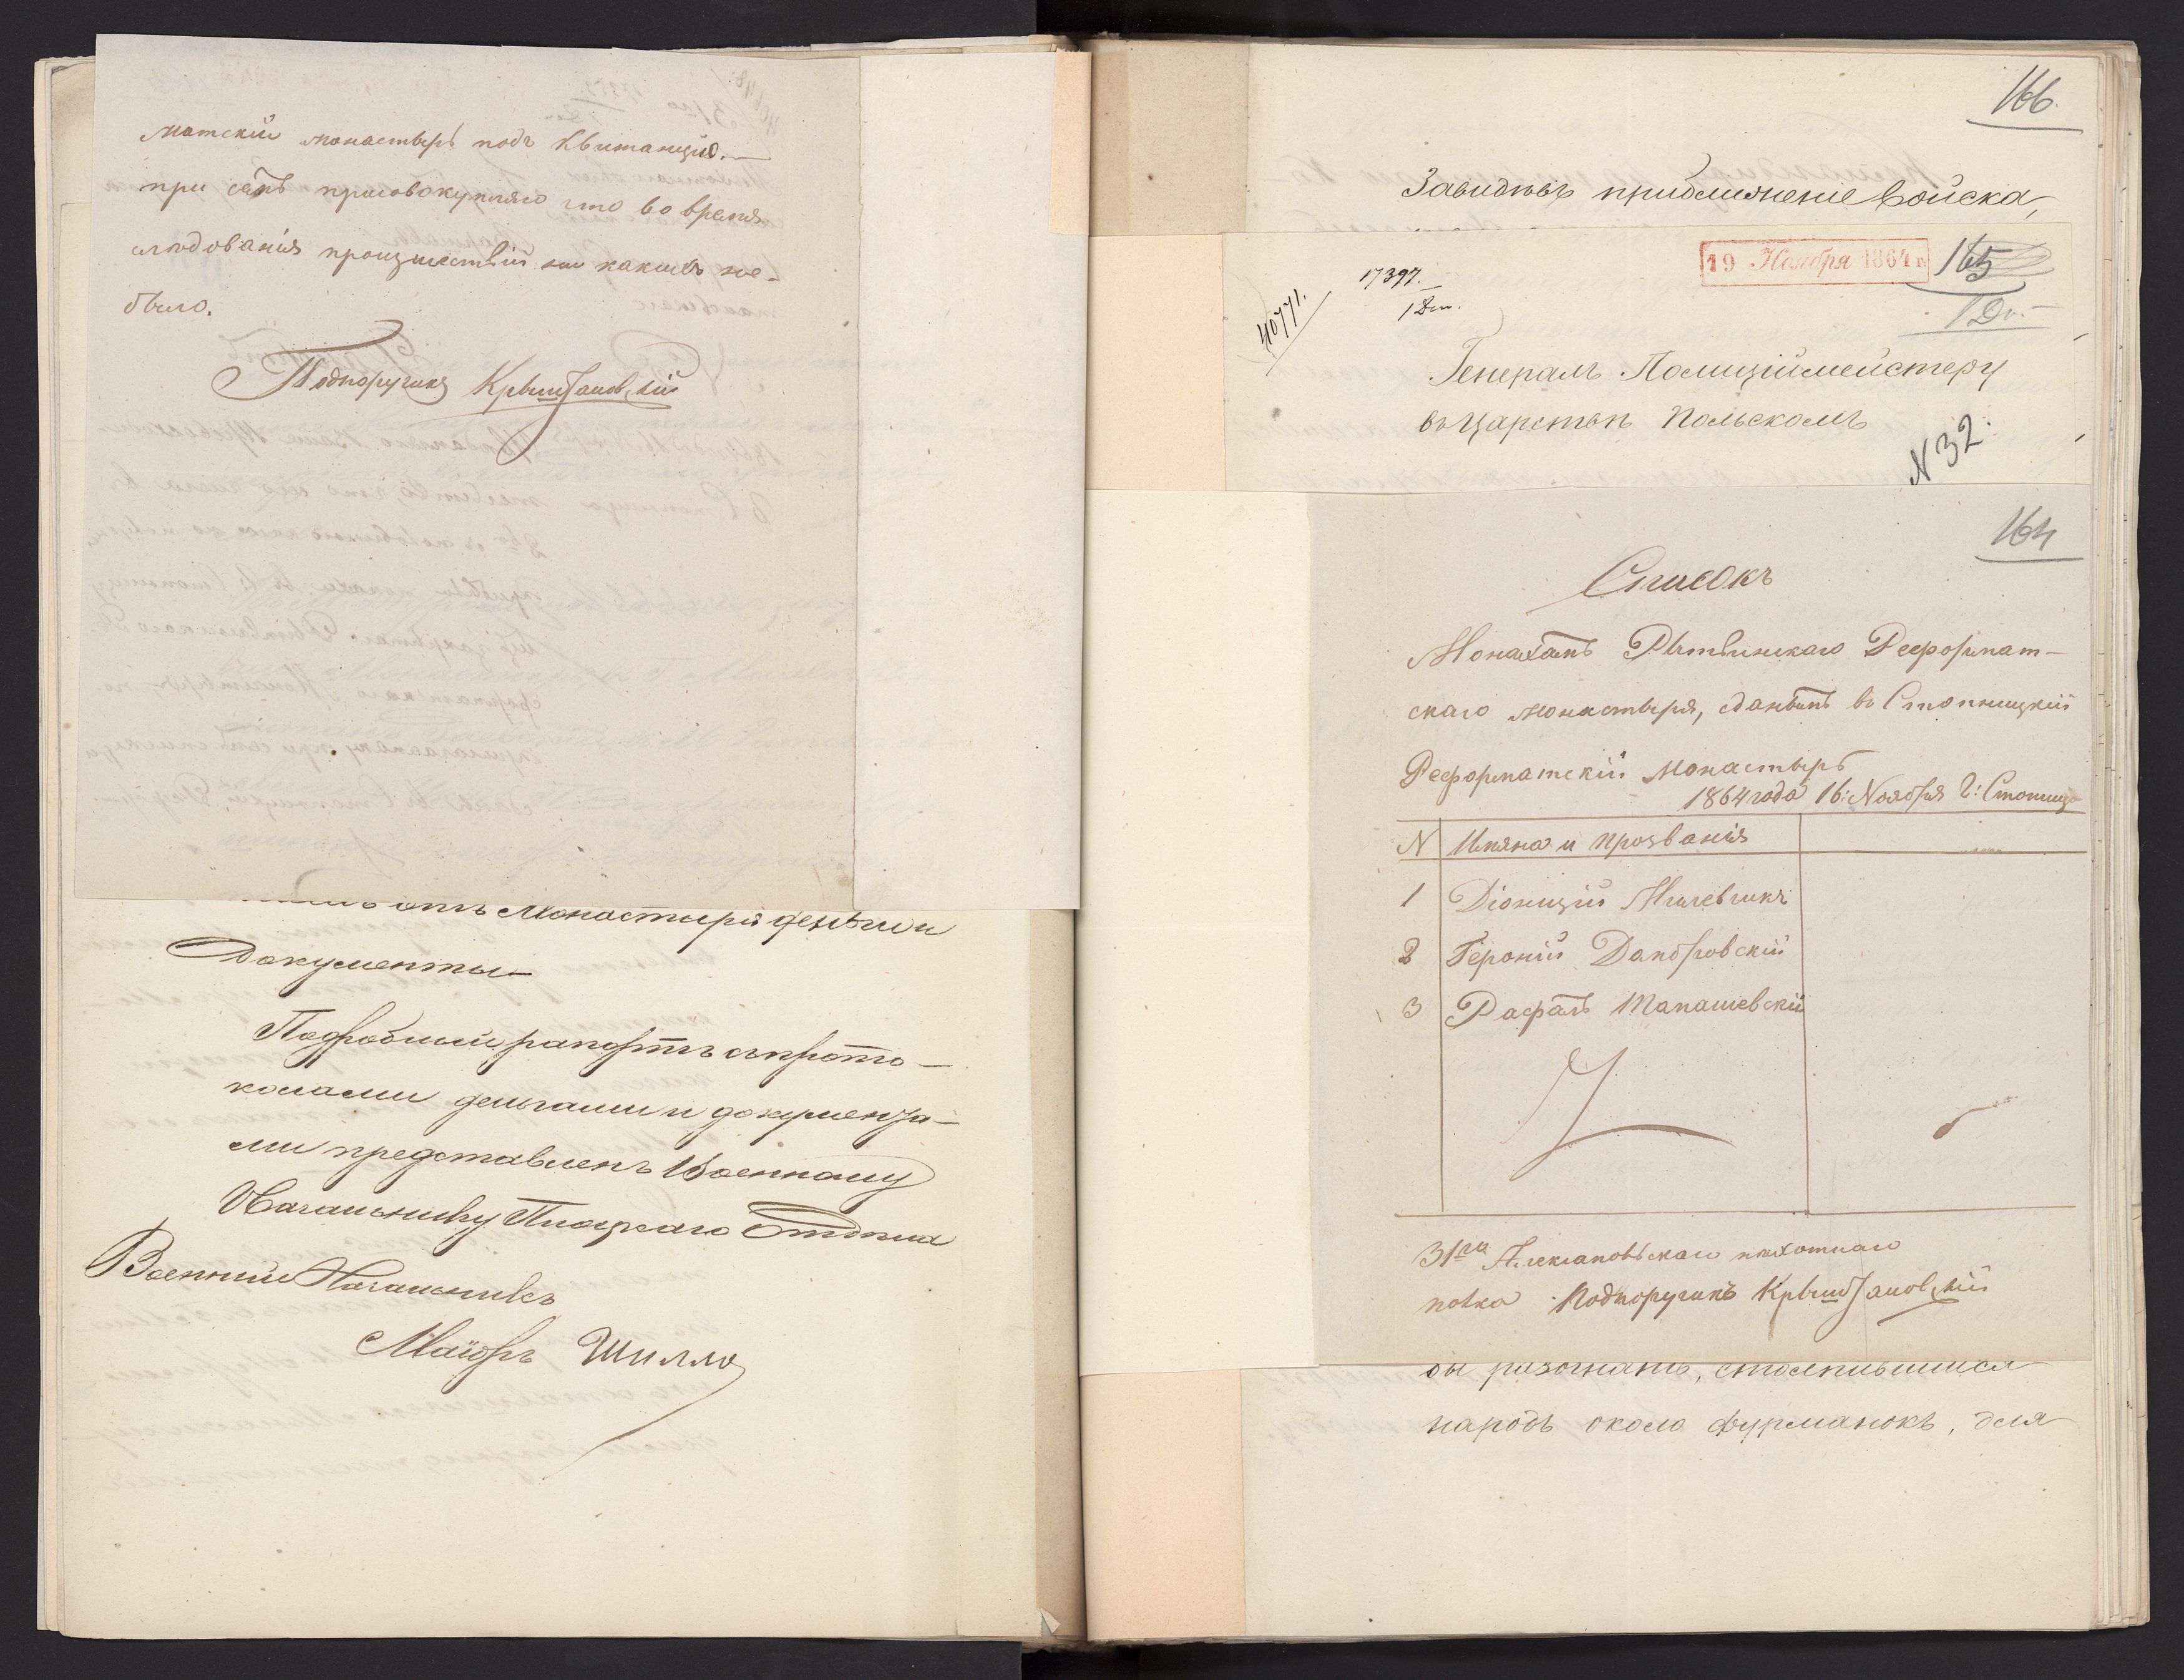 матскій монастырь подъ квитанцію.—
при семъ присовокупляю что во время
слѣдованія произшествій ни какихъ не-
было.
Подпоручикъ Крыштановскій
отъ Монастыря деньги и
документы—
Подробный рапортъ съ прото-
колами деньгами и документа-
ми представленъ Военному
Начальнику Плоцкаго Отдѣла
Военный Начальникъ
Маіоръ Шилло
166.
Завидѣвъ приближеніе войска,
19 Ноября 1864 г.
165
17397.
40771.
Генералъ Полиціймейстеру
въ Царствѣ Польскомъ
N 32.
164
Списокъ
Монахамъ Рытвинскаго Реформат-
скаго монастыря, сданымъ въ Стопницкій
Реформатскій Монастырь
1864 года 16: Ноября г: Стопница
N Имяна и прозванія
1 Діонизій
2 Героній Домбровскій
3 Рафалъ
31го пѣхотнаго
полка Подпоручикъ Крыштановскій
бы разогнать, столпившійся
народъ около фурманокъ, для